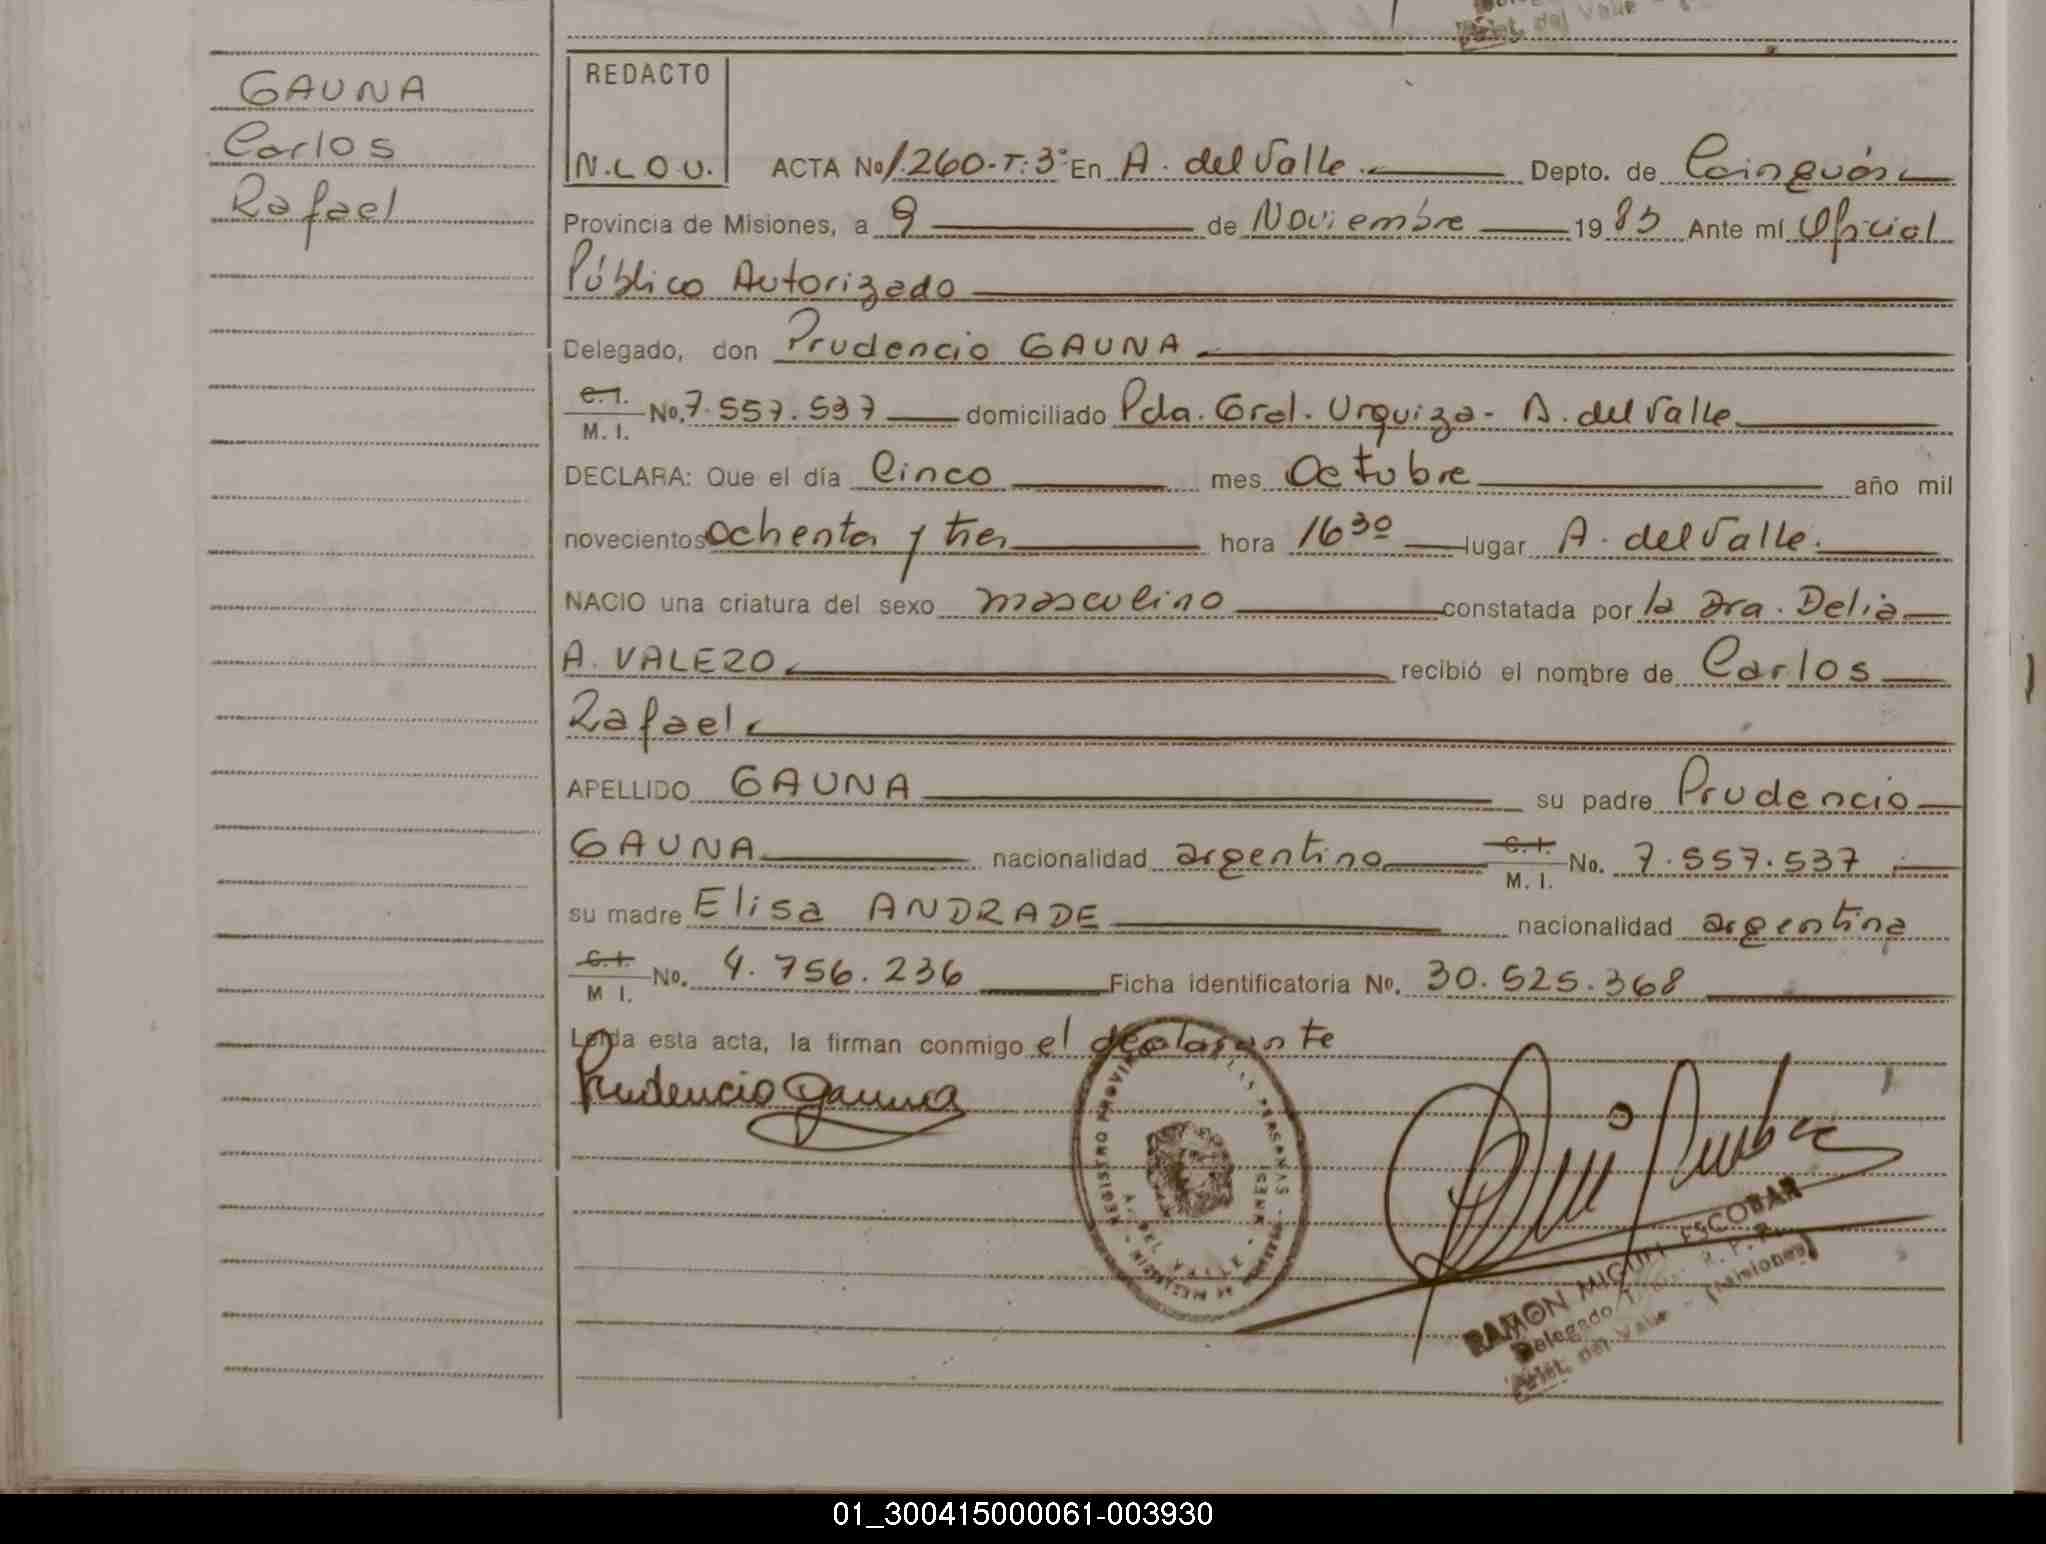 del Valle
GAUNA
Carlos
Rafael
REDACTO
N.L.O.U.
ACTA No 1.260-T:3° En A. del Valle. Depto. de Cainguás
Provincia de Misiones, a 9 de Noviembre 1983 Ante mí Oficial
Público Autorizado
Delegado, don Prudencio GAUNA
C.I.
M. I. No. 7.557.537 domiciliado Pda. Gral. Urquiza - A. del Valle
DECLARA: Que el día Cinco mes Octubre año mil
novecientos ochenta y tres hora 16 30 lugar A. del Valle.
NACIO una criatura del sexo masculino constatada por la Sra. Delia
A. VALEZO recibió el nombre de Carlos
Rafael
APELLIDO GAUNA su padre Prudencio
GAUNA nacionalidad argentino C.I. M. I. No. 7.557.537
su madre Elisa ANDRADE nacionalidad argentina
C.I.
M I. No. 4.756.236 Ficha identificatoria No. 30.525.368
Leída esta acta, la firman conmigo el declarante
Prudencio Gauna
REGISTRO PROVINCIAL DE LAS PERSONAS
RAMON MIGUEL ESCOBAR
Delegado
Arist. del Valle - (Misiones)
01_300415000061-003930